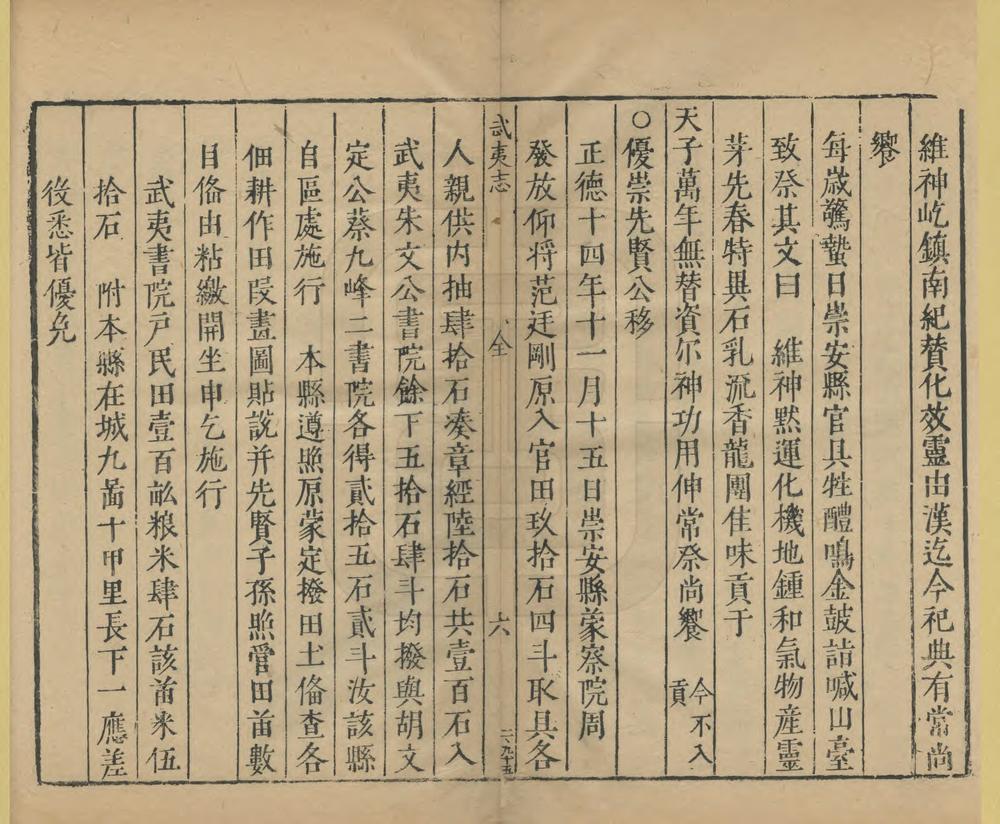 維神屹鎮南紀賛化效靈由漢迄今祀典有常尚
饗
每歲驚蟄日崇安縣官具牲醴鳴金鼓詣喊山臺
致祭其文曰　維神黙運化機地鍾和氣物産靈
芽先春特異石乳流香龍團佳味貢于
天子萬年無替資尔神功用伸常祭尚饗　今不入貢
○優崇先賢公移
正德十四年十一月十五日崇安縣蒙察院周
發放仰将范廷剛原入官田玖拾石四斗取具各
武夷志　全　六
人親供内抽肆拾石湊章經陸拾石共壹百石入
武夷朱文公書院餘下五拾石肆斗均撥與胡文
定公蔡九峰二書院各得貳拾五石貳斗汝該縣
自區處施行　本縣遵照原蒙定撥田土俻查各
佃耕作田叚畫圖貼說并先賢子孫照管田畝數
目俻由粘繳開坐申乞施行
武夷書院戸民田壹百畝粮米肆石該苗米伍
拾石　附本縣在城九啚十甲里長下一應差
役悉皆優免